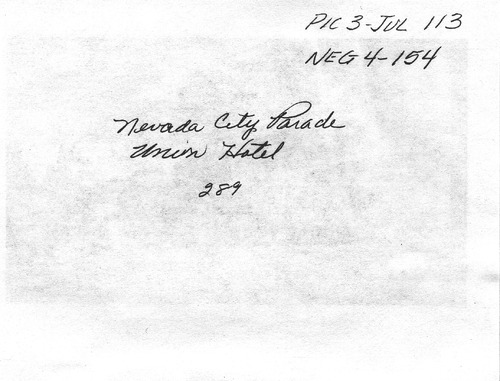 PIC 3-JUL 113
NEG 4-154
Nevada City Parade
Union Hotel
289